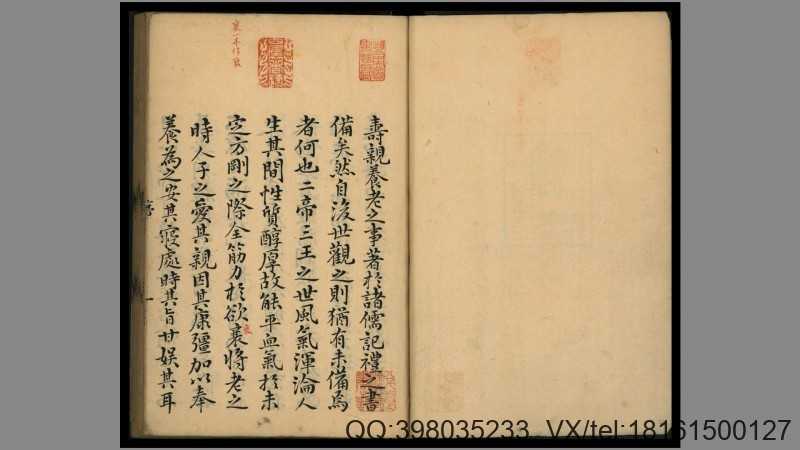 壽親養老之事著於諸儒記禮之書
備矣然自後世觀之則猶有未備焉
者何也二帝三王之世風氣渾淪人
生其間性質醇厚故能平血氣於未
定方剛之際全筋力於欲衰將老之
時人子之愛其親因其康彊加以奉
養為之安其寢處時其旨甘娛其耳
序
一
QQ:398035233 VX/tel:18161500127